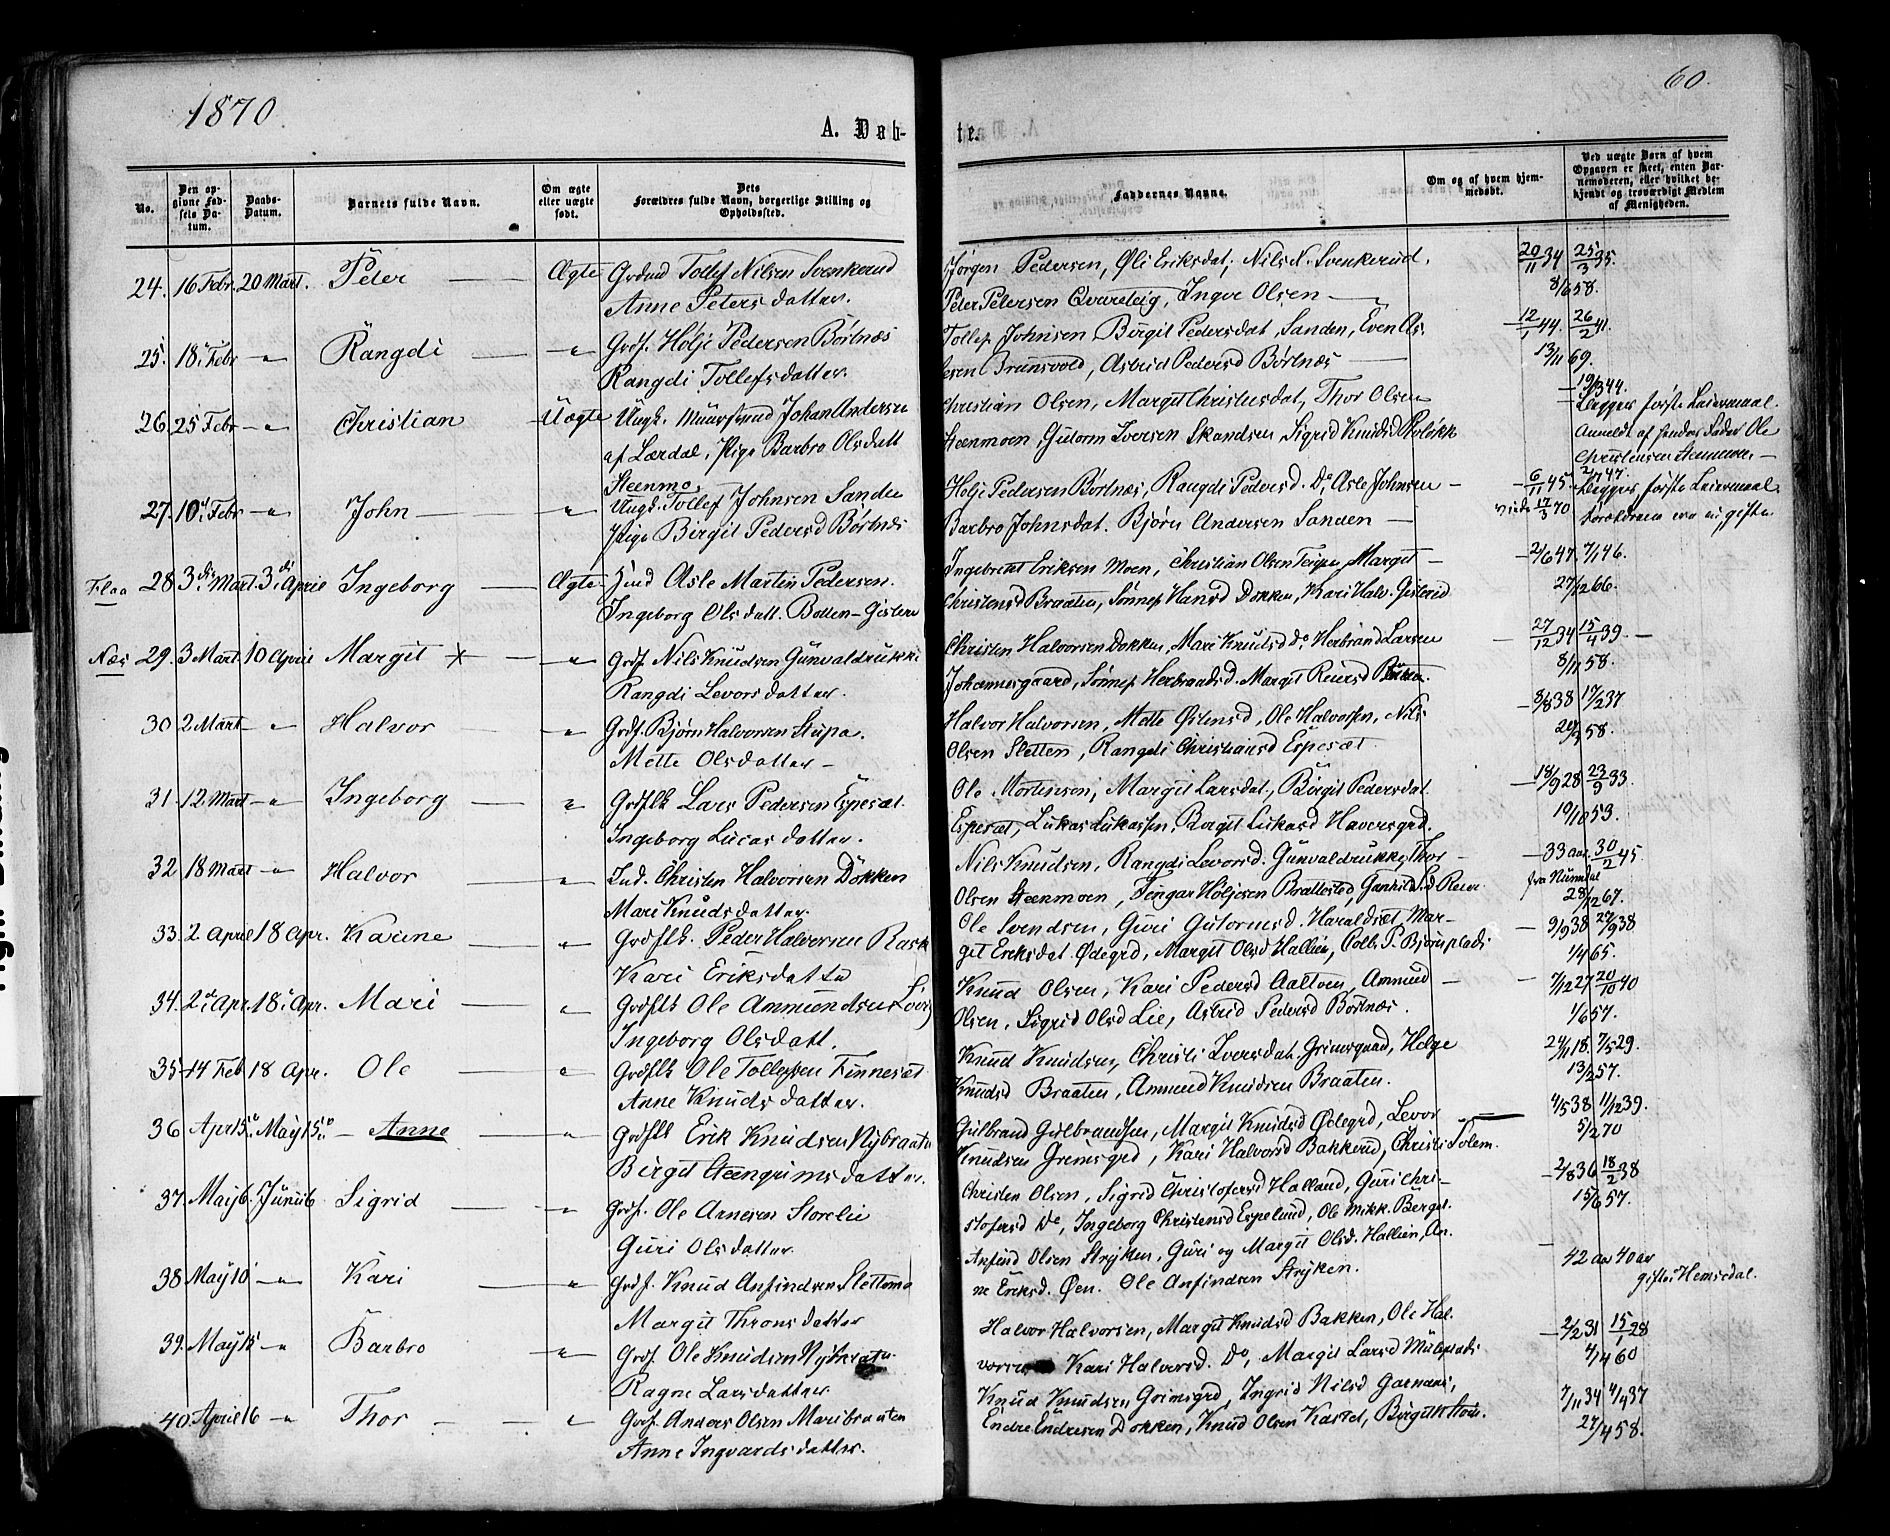 1870
60.
A. Døb-
te.
No.
Den op-
givne Fød-
sels Da-
tum.
Daabs-
Datum.
Barnets fulde Navn.
Om ægte
eller uægte
født.
Dets
Forældres fulde Navn, borgerlige Stilling og
Opholdssted.
Faddernes Navne.
Om og af hvem hjem-
medøbt.
Ved uægte Børn af hvem
Opgaven er skeet, enten Bar-
nemoderen, eller hvilket be-
kjendt og troværdigt Medlem
af Menigheden.
24. 16 Febr. 20 Mart. Peter — Ægte Tollef Nilsen Svenkerud
Anne Petersdatter.
Jørgen Pedersen, Øli Eriksdat, Nils N. Svenkerud,
Peter Petersen Qvarteig, Ingvr Olsen —
20/11 34 25/3 35.
8/6 58.
25. 18. Febr — " Rangdi — " Grdf. Holje Pedersen Børtnæs
Rangdi Tollefsdatter.
Tollef Johnsen Birgit Pedersdat Sanden, Even As-
esen Brunsvold, Astrid Pedersd Børtnæs —
12/1 44. 26/2 41.
13/11 69.
26 25 Febr — " Christian — Uægte Ungk. Johan Andersen
af Lærdal, Pige Barbro Olsdatt
Steenmo
Christian Olsen, Margit Christensdat, Thor Olsen
Steenmoen, Gutorm Iversen Skandsen Sigrid Knudsd
19/3 44.
Begges første Leiermaal.
Anmeldt af hendes Fader Ole
Christensen Steenmoen —
27. 10. Febr — " John — " Ungk. Tollef Johnsen Sanden
Pige Birgit Pedersd Børtnæs
Holje Pedersen Børtnæs, Rangdi Pedersd. Do, Asle Johnsen —
Barbro Johnsdat. Bjørn Andersen Sanden —
6/11 45. 2/7 47.
viede 17/3 70
Begges første Leiermaal
Forældrene ere nu gifte.
Flaa 28. 3die Mart. 3di April Ingeborg — Ægte Asle Martin Pedersen.
Ingeborg Olsdatt. Botten-Gislerud
Ingebret Eriksen Moen, Christian Olsen Margit —
Christensd Braaten, Sønnep Hansd Dokken, Kari Halv. Gislerud
2/6 47. 7/1 46.
27/12 66.
Næs 29. 3 Mart. 10 April Margit x — " Grdf Nils Knudsen Gunvaldrukke
Rangdi Levorsdatter.
Christen Halvorsen Dokken, Mari Knudsd Do, Herbrand Larsen
Johannesgaard, Sønnep Herbrandsd. Margit Reiersd
27/12 34 15/4 39. —
8/11 58.
30 2 Mart — " Halvor — " Grdf. Bjørn Halvorsen Stupa.
Mette Olsdatter —
Halvor Halvorsen, Mette Østensd, Ole Halvorsen, Nils
Olsen Sletten, Rangdi Christiansd Espeset.
8/8 38 17/2 37
58.
31. 12 Mart — " Ingeborg — " Grdflk Lars Pedersen Espeset.
Ingeborg Lucasdatter.
Ole Mortensen, Margit Larsdat, Birgit Pedersdat
Espeset, Lukas Lukassen, Birgit Lukasd Haversgrd.
18/9 28 23/9 33.
19/10 53.
32 18 Mart — " Halvor — " Ind. Christen Halvorsen Dokken
Mari Knudsdatter.
Nils Knudsen, Rangdi Levorsd. Gunvaldrukke, Thor —
Olsen Steenmoen, Fingar Holjesen Brattested,
33 aar. 30/2 45
fra Numedal
28/12 67.
33. 2 April 18 Apr. Karine — " Grdflk. Peder Halvorsen Rask
Kari Eriksdatter
Ole Svendsen, Guri Gutormsd. Haraldset, Mar-
git Eriksdat. Ødegrd, Margit Olsd Hallien, Colb. P. Bjørnplads
9/9 38 27/9 38
1/4 65.
34. 2d Apr. 18. Apr. Mari — " Grdflk Ole Ammundsen
Ingeborg Olsdatt.
Knud Olsen, Kari Pedersd Aaltoen, Ammund —
Olsen, Sigrid Olsd Lie, Astrid Pedersd Børtnæs.
7/12 27 20/10 40
1/6 57.
35 14 Feb. 18 Apr. Ole — " Grdflk Ole Tollefsen Finneset
Anne Knudsdatter.
Knud Knudsen, Christi Iversdat. Grimsgaad, Helge
Knudsd Braaten, Ammund Knudsen Braaten.
24/11 18 7/5 29.
13/2 57.
36 Apr 15. May 15. — Anne — " Grdflk Erik Knudsen Nybraaten
Birgit Steengrimsdatter.
Gulbrand Gulbrandsen, Margit Knudsd Ødegrd, Levor —
Knudsen Grimsgrd, Kari Halvorsd Bakkerud, Christi
4/5 38 1/12 39.
5/2 70
37. May 6. Juni 6 Sigrid — " Grdf. Ole Arnesen Storelie
Guri Olsdatter.
Christen Olsen, Sigrid Christofersd Halland, Guri Chri-
stofersd Do, Ingeborg Christensd Espelund, Ole Mikk. Berget.
2/8 36 18/2 38
15/6 57.
38 May 10 — " Kari — " Grdf. Knud Anfindsen Slettemo
Margit Thronsdatter
Anfind Olsen Stryken, Guri og Margit Olsd. Hallien, An-
ne Eriksd. Øen. Ole Anfindsen Stryken.
42 aar 40 aar
gifte i Hemsedal.
39. May 15 — " Barbro — " Grdf. Ole Knudsen Nybraaten
Ragne Larsdatter
Halvor Halvorsen, Margit Knudsd Bakken, Ole Hal-
vorsen Kari Halvorsd. Do, Margit Larsd
2/2 31 15/1 28
4/4 60
40. April 16 — " Thor — " Grdf. Anders Olsen Maribraaten
Anne Ingvardsdatter.
Knud Knudsen Grimsgrd, Ingrid Nilsd Garnaas,
Endre Endresen Dokken, Knud Olsen Kastet,
7/11 34 4/4 37
27/4 58.